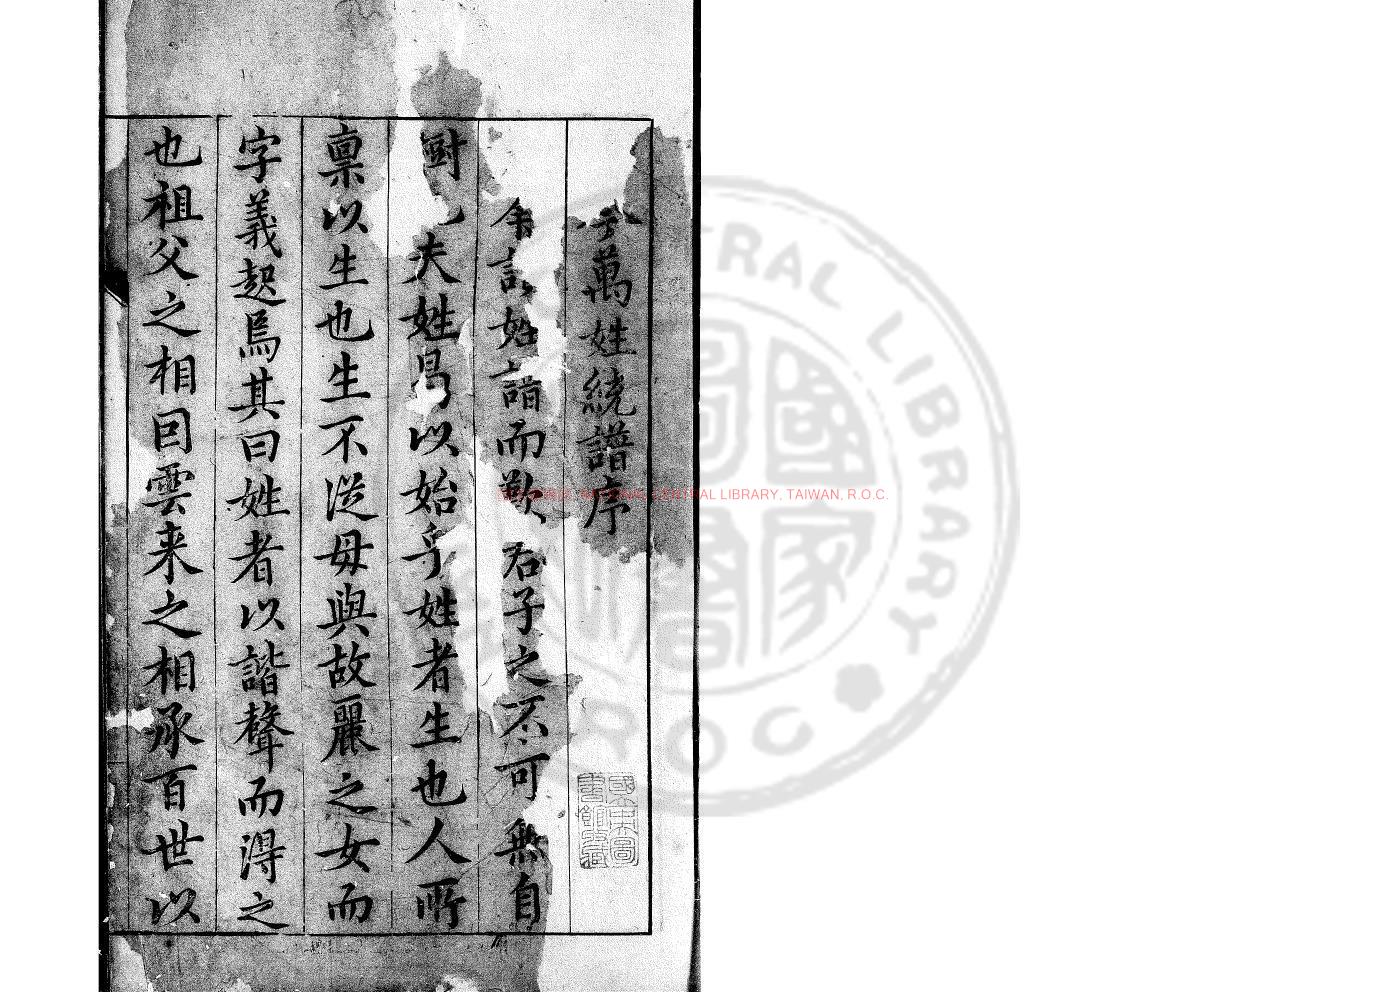 萬姓統譜序
余訂姓譜而歎君子之不可無自
樹也夫姓昜以始乎姓者生也人所
稟以生也生不從母與故麗之女而
字義起焉其曰姓者以諧聲而得之
也祖父之相因雲来之相承百世以
NATIONAL CENTRAL LIBRARY, TAIWAN, R.O.C.
CENTRAL LIBRARY
R O C
國家圖書館藏